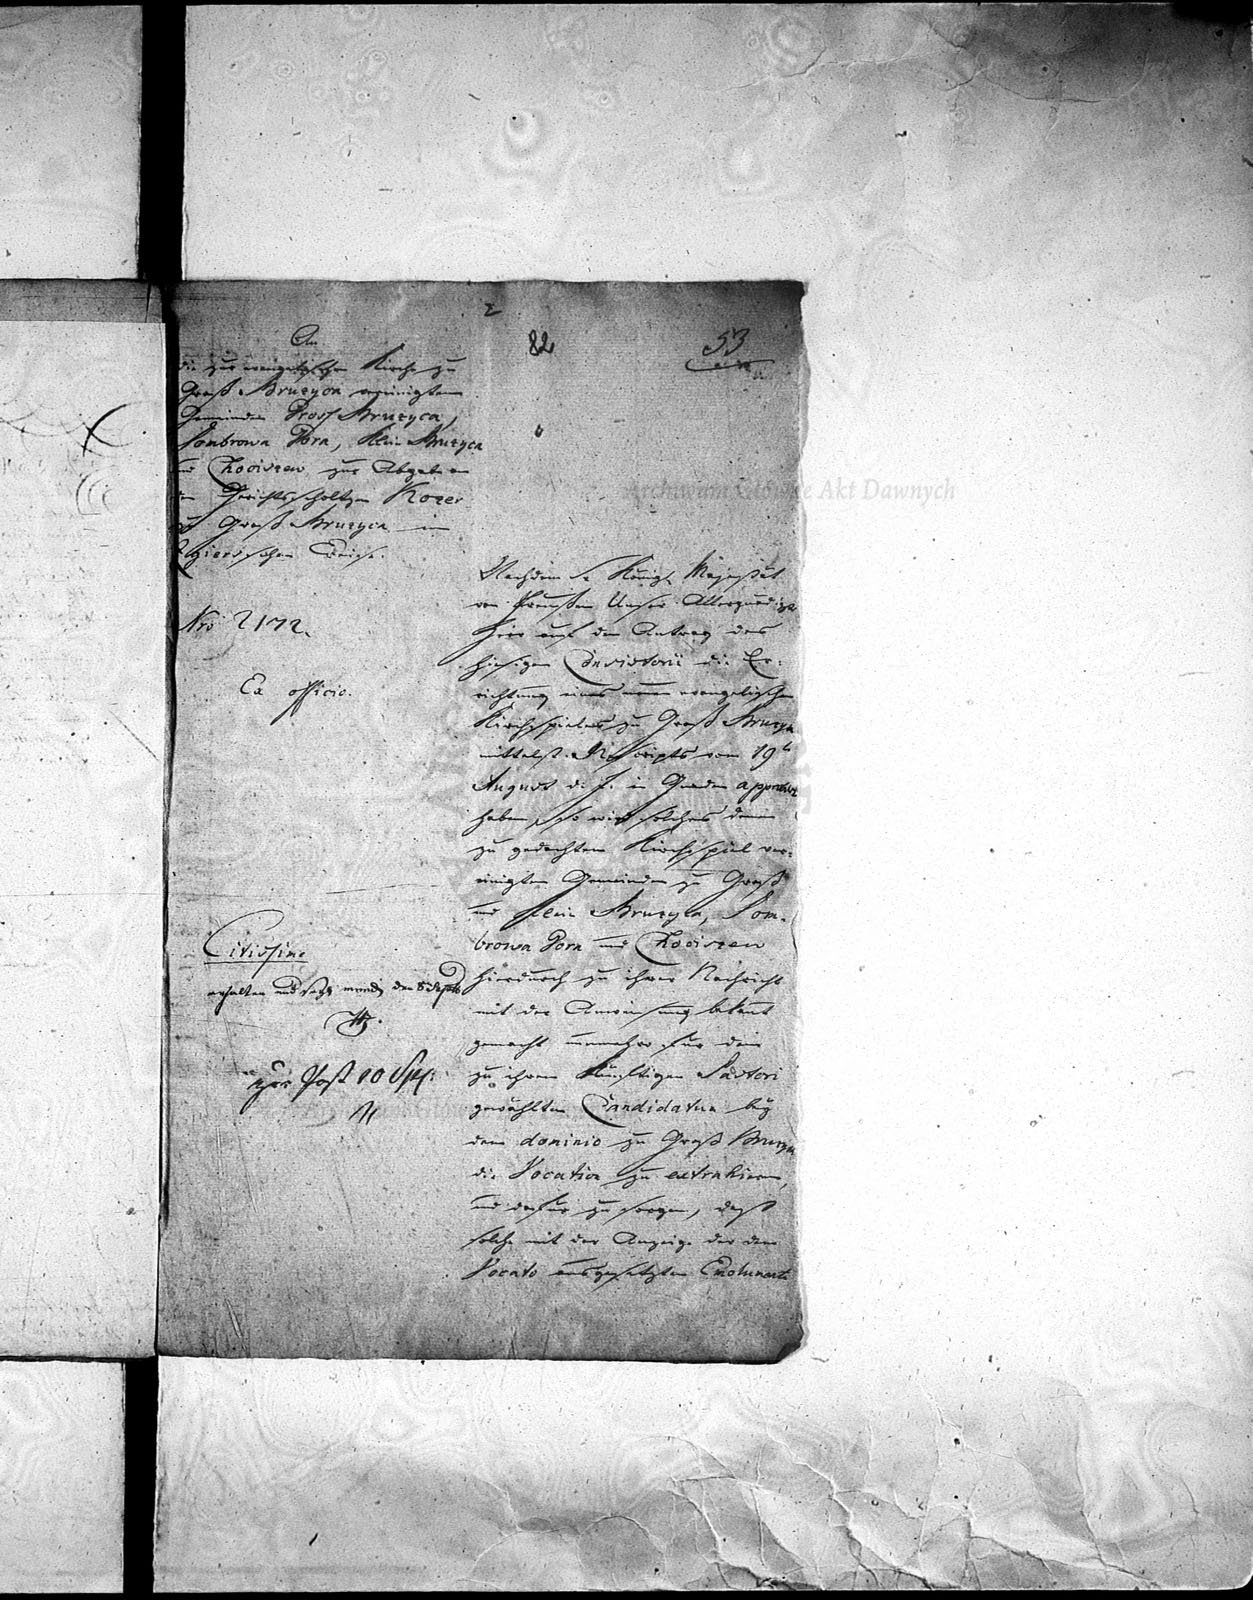 82
53
An
die zur evangelischen Kirche zu
Groß Bruzyca vereinigten
Gemeinden Gross Bruzyca,
Dombrowa Gora, Klein Bruzyca
und Chociszew zur Abgabe an
den Gerichtsscholtzen
zu Groß Bruzyca im
Zgierzschen Creise.
Nro 2172.
Ex officio.
Nachdem Se Königl. Majestät
von Preußen Unser Allergnädigster
Herr auf den Antrag des
hiesigen Consistorii die Er-
richtung eines neuen evangelischen
Kirchspieles zu Groß Bruzyca
mittelst Rescripts vom 19t
August d. J. in Gnaden approbirt
haben, so wird solches denen
zu gedachten Kirchspiel ver-
einigten Gemeinden zu Groß
und Klein Bruzyca, Dom-
browa Gora und Chociszew
hierdurch zu ihrer Nachricht
mit der Anweisung bekannt
gemacht nunmehro für den
zu ihrem künftigen Pastori
gewählten Candidaten bey
dem dominio zu Groß Bruzyca
die Vocation zu extrahiren,
und dafür zu sorgen, daß
solche mit der Anzeige der dem
Vocato ausgesetzten Emolumente
Citissime
erhalten und mund. den 8 Sept
zur Post 10 Sept:
Archiwum Główne Akt Dawnych